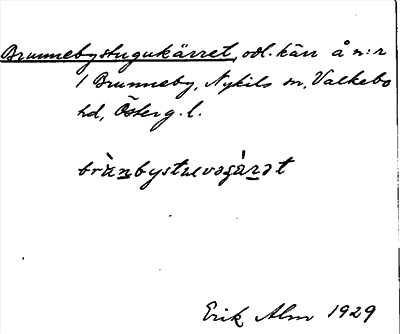 Brunnebystugukärret, odl. kärr å n:r
1 Brunneby, Nykils sn, Valkebo
hd, Österg. l.
brùnbystuvəçárət
Erik Alm 1929